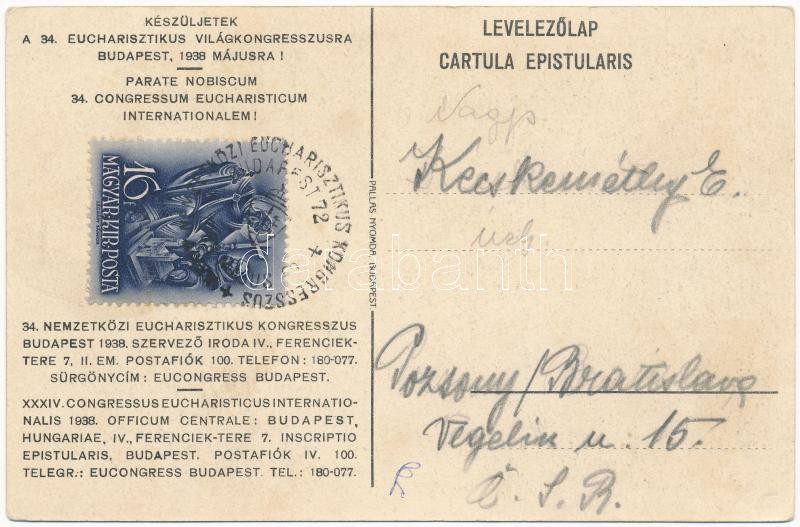 KÉSZÜLJETEK
A 34. EUCHARISZTIKUS VILÁGKONGRESSZUSRA
BUDAPEST, 1938 MÁJUSRA !
PARATE NOBISCUM
34. CONGRESSUM EUCHARISTICUM
INTERNATIONALEM !
16
MAGYAR·KIR·POSTA
KÖZI EUCHARISZTIKUS KONGRESSZUS
BUDAPEST 72
34. NEMZETKÖZI EUCHARISZTIKUS KONGRESSZUS
BUDAPEST 1938. SZERVEZŐ IRODA IV., FERENCIEK-
TERE 7, II. EM. POSTAFIÓK 100. TELEFON : 180-077.
SÜRGÖNYCÍM : EUCONGRESS BUDAPEST.
XXXIV. CONGRESSUS EUCHARISTICUS INTERNATIO-
NALIS 1938. OFFICUM CENTRALE : BUDAPEST,
HUNGARIAE, IV., FERENCIEK-TERE 7. INSCRIPTIO
EPISTULARIS, BUDAPEST. POSTAFIÓK IV. 100.
TELEGR.: EUCONGRESS BUDAPEST. TEL.: 180-077.
PALLAS NYOMDA, BUDAPEST
LEVELEZŐLAP
CARTULA EPISTULARIS
Nagys.
Kecskeméthy E.
úrh.
Pozsony/Bratislava
Vegelin u. 15.
Č. S. R.
darabanth